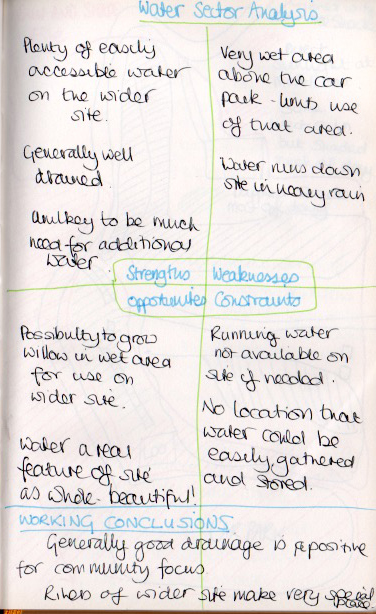 Water Sector Analysis
Plenty of easily
accessible water
on the wider
site.
Generally well
drained.
Unlikey to be much
need for additional
water.
Very wet area
above the car
park - limits use
of that area.
Water runs down
site in heavy rain
Strengths
Weaknesses
Opportunities
Constraints
Possibility to grow
willow in wet area
for use on
wider site.
Water a real
feature of site
as whole - beautiful!
Running water
not available on
site if needed.
No location that
water could be
easily gathered
and stored.
WORKING CONCLUSIONS
Generally good drainage is a positive
for community focus
Rivers of wider site make very special
place